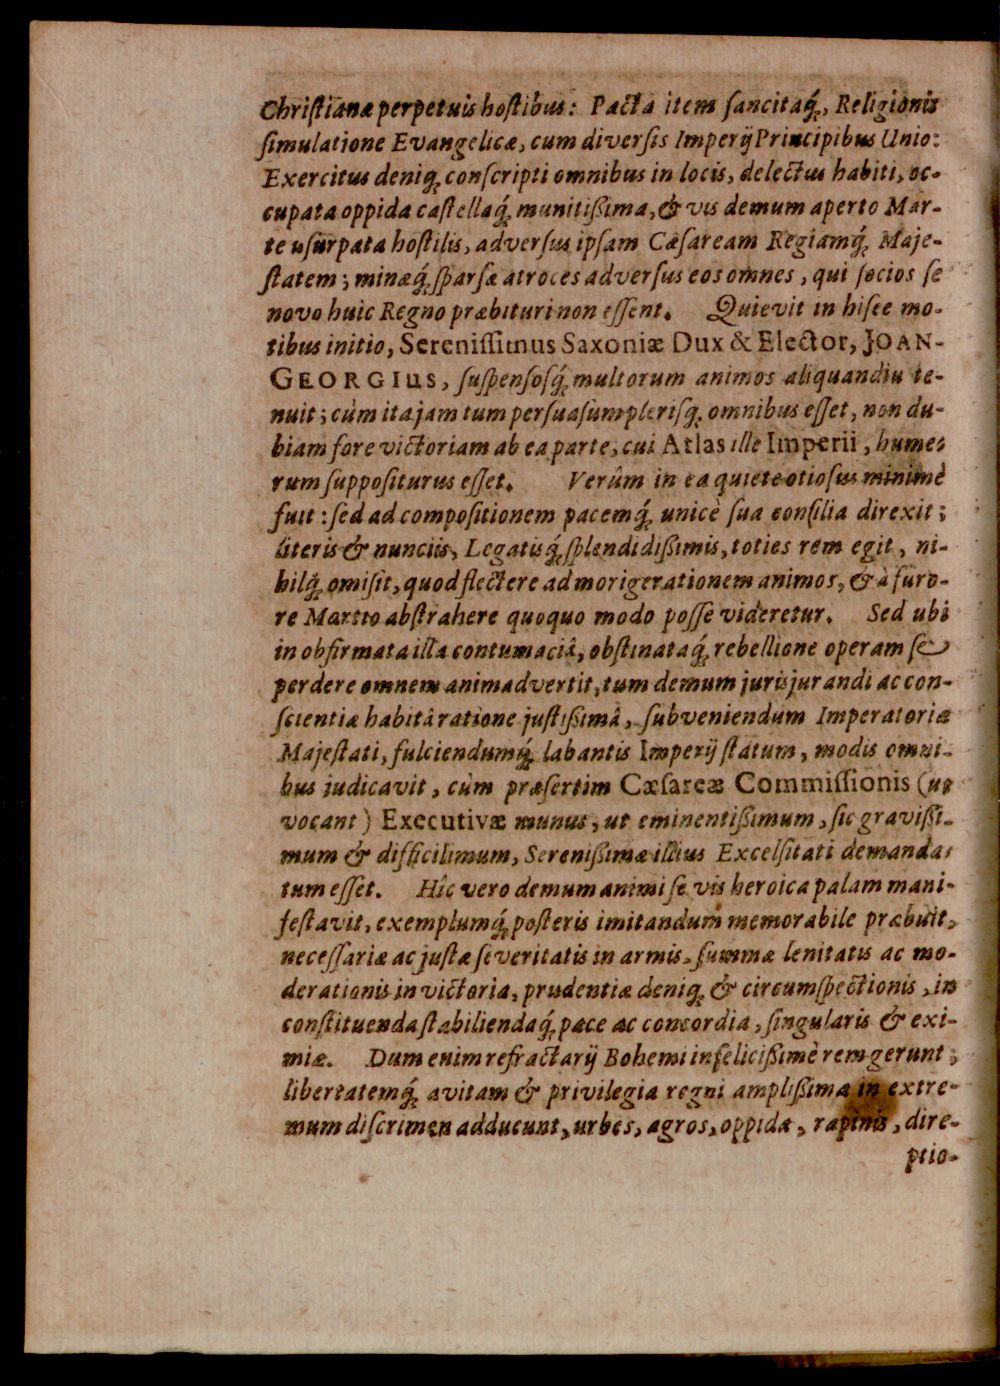 Chriſtianæ perpetuis hoſtibus: Pacta item ſancitaq́;, Religionis
ſimulatione Evangelicæ, cum diverſis Imperij Principibus Unio:
Exercitus deniq; conſcripti omnibus in locis, delectus habiti, oc-
cupata oppida caſtellaq́; munitißima, & vis demum aperto Mar-
te uſurpata hoſtilis, adverſus ipſam Cæſaream Regiamq́; Maje-
ſtatem; minæq́; ſparſæ atroces adverſus eos omnes, qui ſocios ſe
novo huic Regno præbituri non eſſent. Quievit in hiſce mo-
tibus initio, Sereniſſimus Saxoniæ Dux & Elector, JOAN-
GEORGIUS, ſuſpenſosq́; multorum animos aliquandiu te-
nuit; cùm ita jam tum perſuaſum pleriſq; omnibus eſſet, non du-
biam fore victoriam ab ea parte, cui Atlas ille Imperii, hume-
rum ſuppoſiturus eſſet. Verùm in ea quiete otioſus minimè
fuit: ſed ad compoſitionem pacemq́; unicè ſua conſilia direxit;
literis & nunciis, Legatisq́; ſplendidißimis, toties rem egit, ni-
hilq́; omiſit, quod flectere ad morigerationem animos, & à furo-
re Martio abſtrahere quoquo modo poſſe videretur. Sed ubi
in obfirmata illa contumaciâ, obſtinataq́; rebellione operam ſe
perdere omnem animadvertit, tum demum jurisjurandi ac con-
ſcientiæ habitâ ratione juſtißimâ, ſubveniendum Imperatoriæ
Majeſtati, fulciendumq́; labantis Imperij ſtatum, modis omni-
bus judicavit, cùm præſertim Cæſareæ Commiſſionis (ut
vocant) Executivæ munus, ut eminentißimum, ſic gravißi-
mum & difficilimum, Serenißimæ illius Excelſitati demanda-
tum eſſet. Hîc vero demum animi ſe vis heroica palam mani-
feſtavit, exemplumq́; poſteris imitandum memorabile præbuit,
neceſſariæ ac juſtæ ſeveritatis in armis, ſummæ lenitatis ac mo-
derationis in victoria, prudentiæ deniq; & circumſpectionis, in
conſtituenda ſtabiliendaq́; pace ac concordia, ſingularis & exi-
miæ. Dum enim refractarij Bohemi infelicißimè rem gerunt;
libertatemq́; avitam & privilegia regni amplißima in extre-
mum diſcrimen adducunt, urbes, agros, oppida, rapinis, dire-
ptio-